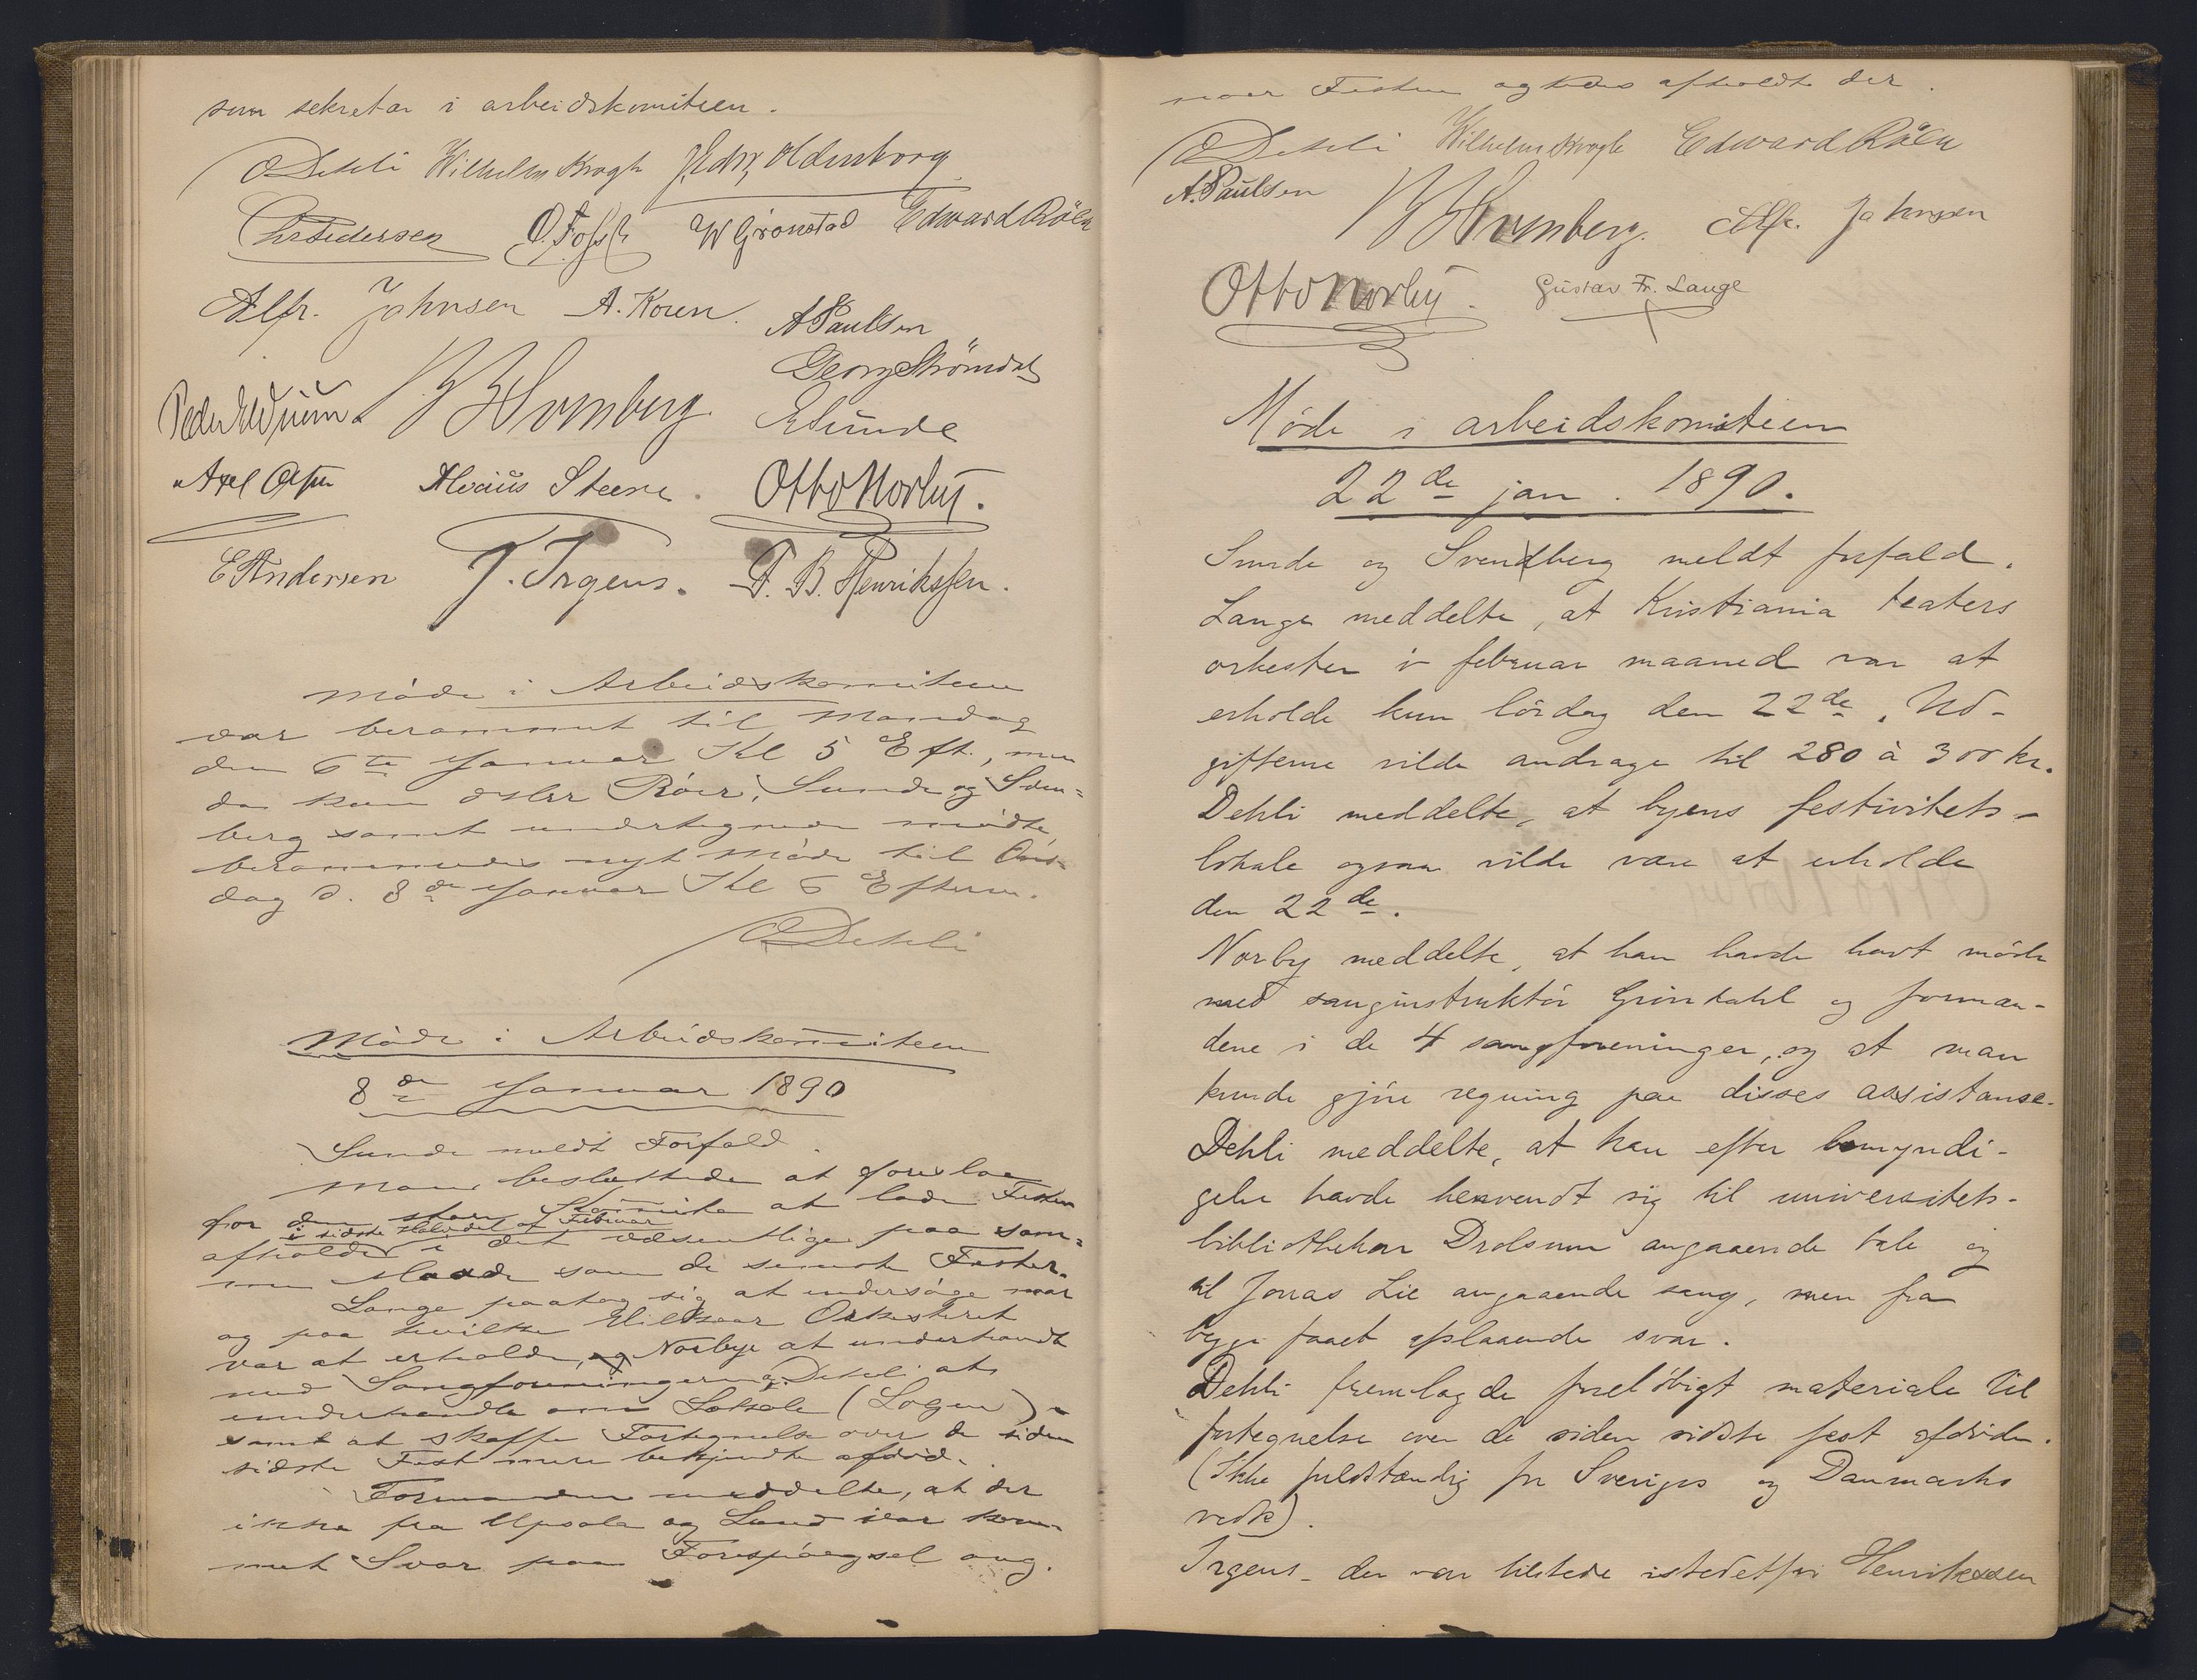 som sekretær i arbeidskomiteen.
O Dehli Wilhelm Krogh Edw. Oldenborg
Chr Pedersen O. Foss W Grønstad Edward Röer
Alfr. Johnsen A. Koren. A Paulsen
Georg Strömdal
Peder B Svenberg. E Sunde
Axel Olsen Steene. Otto Norby.
E Andersen J. Irgens. F. B. Henrikssen.
Möde i Arbeidskomiteen
var berammet til Mandag
den 6te Januar Kl 5 Eft., men
da kun Röer, Sunde og Sven=
berg samt undertegnede mödte,
berammedes nyt Möde til Ons=
dag d. 8de Januar Kl 6 Efterm.
O Dehli
Möde i Arbeidskomiteen
8de Januar 1890
Sunde meldt Forfald.
Man besluttede at foreslaa
for den store Komite at lade Festen
i sidste Halvdel af Februar
afholde i det væsentlige paa sam=
me Maade som de seneste Fester.
Lange paatog sig at undersöge naar
og paa hvilke Vilkaar Orkesteret
var at erholde, og Norby at underhandle
med Sangforeningerne, Dehli at
underhandle om Lokale (Logen)
samt at skaffe Fortegnelse over de siden
sidste Fest mere bekjendte afdöd.
Formanden meddelte, at der
ikke fra Upsala og Lund var kom-
met Svar paa Forespörgsel ang.
naar Festen afholdt der.
O Dehli Wilhelm Krogh Edward Röer
A. Paulsen B Svenberg. Alfr. Johnsen
Otto Norby. Gustav Fr. Lange
Möde i arbeidskomiteen
22de jan. 1890.
Sunde og Svendberg meldt forfald.
Lange meddelte, at Kristiania teaters
orkester i februar maaned var at
erholde kun lördag den 22de. Ud-
gifterne vilde andrage til 280 à 300 kr.
Dehli meddelte, at byens festivitets-
lokale ogsaa vilde være at erholde
den 22de.
Norby meddelte, at han havde havt möde
med sanginstruktör Gröndahl og forman-
dene i de 4 sangforeninger, og at man
kunde gjöre regning paa disses assistanse.
Dehli meddelte, at han efter bemyndi-
gelse havde henvendt sig til universitets-
bibliothekar Drolsum angaaende tale og
til Jonas Lie angaaende sang, men fra
begge faaet afslaaende svar.
Dehli fremlagde forelöbigt materiale til
fortegnelse over de siden sidste fest afdöde.
(Ikke fuldstændig for Sveriges og Danmarks
vedk).
Irgens - der var tilstede istedetfor Henrikssen